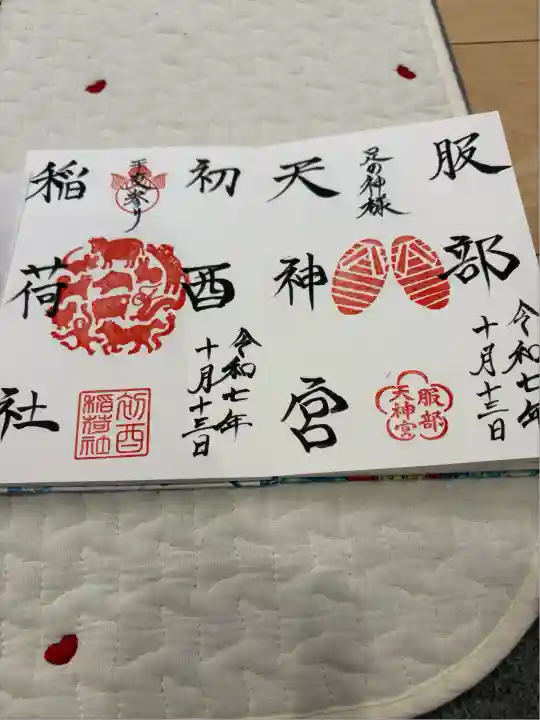 服部
足の神様
天神宮
服部
天神宮
令和七年
十月十三日
初酉
干支参り
稲荷社
初酉
稲荷社
令和七年
十月十三日